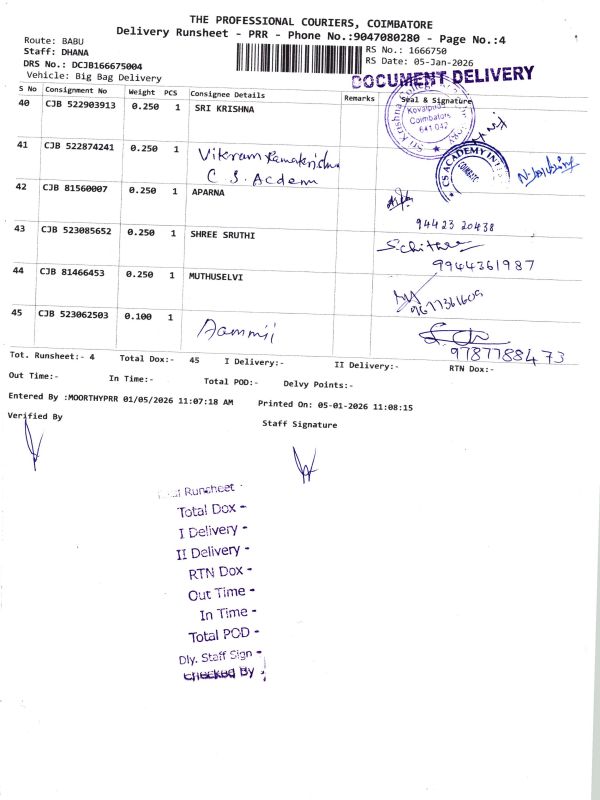 THE PROFESSIONAL COURIERS, COIMBATORE
Delivery Runsheet - PRR - Phone No.:9047080280 - Page No.:4
Route: BABU
RS No.: 1666750
Staff: DHANA
RS Date: 05-Jan-2026
DRS No.: DCJB166675004
DOCUMENT DELIVERY
Vehicle: Big Bag Delivery
S No Consignment No Weight PCS Consignee Details Remarks Seal & Signature
40 CJB 522903913 0.250 1 SRI KRISHNA
Coimbatore
641 042
41 CJB 522874241 0.250 1 Vikram Ramakrishna
C.S. Acdemi
CS ACADEMY
42 CJB 81560007 0.250 1 APARNA
94423 20438
43 CJB 523085652 0.250 1 SHREE SRUTHI
9944361987
44 CJB 81466453 0.250 1 MUTHUSELVI
9677361609
45 CJB 523062503 0.100 1 Aammii
9787788473
Tot. Runsheet:- 4 Total Dox:- 45 I Delivery:- II Delivery:- RTN Dox:-
Out Time:- In Time:- Total POD:- Delvy Points:-
Entered By :MOORTHYPRR 01/05/2026 11:07:18 AM Printed On: 05-01-2026 11:08:15
Verified By
Staff Signature
Runsheet -
Total Dox -
I Delivery -
II Delivery -
RTN Dox -
Out Time -
In Time -
Total POD -
Dly. Staff Sign -
Checked By -